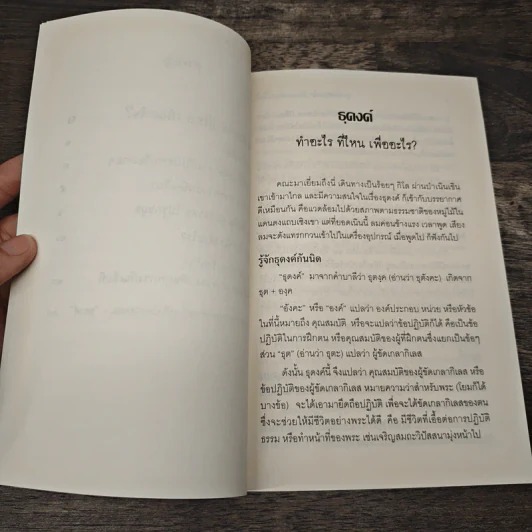 ธุดงค์
ทำอะไร ที่ไหน เพื่ออะไร?
คณะมาเยี่ยมถึงนี่ เดินทางเป็นร้อยๆ กิโล ผ่านป่าเนินเชิน
เขาเข้ามาไกล และมีความสนใจในเรื่องธุดงค์ ก็เข้ากับบรรยากาศ
ดีเหมือนกัน คือแวดล้อมไปด้วยสภาพตามธรรมชาติของหมู่ไม้ใน
แดนดงแถบเชิงเขา แต่ที่ยอดเนินนี้ ลมค่อนข้างแรง เวลาพูด เสียง
ลมจะดังแทรกกวนเข้าไปในเครื่องอุปกรณ์ เมื่อพูดไป ก็ฟังกันไป
รู้จักธุดงค์กันนิด
"ธุดงค์" มาจากคำบาลีว่า ธุตงฺค (อ่านว่า ธุตังคะ) เกิดจาก
ธุต + องฺค
"อังคะ" หรือ "องค์" แปลว่า องค์ประกอบ หน่วย หรือหัวข้อ
ในที่นี้หมายถึง คุณสมบัติ หรือจะแปลว่าข้อปฏิบัติก็ได้ คือเป็นข้อ
ปฏิบัติในการฝึกตน หรือคุณสมบัติของผู้ที่ฝึกตนซึ่งแยกเป็นข้อๆ
ส่วน "ธุต" (อ่านว่า ธุตะ) แปลว่า ผู้ขัดเกลากิเลส
ดังนั้น ธุดงค์นี้ จึงแปลว่า คุณสมบัติของผู้ขัดเกลากิเลส หรือ
ข้อปฏิบัติของผู้ขัดเกลากิเลส หมายความว่าสำหรับพระ (โยมก็ได้
บางข้อ) จะได้เอามายึดถือปฏิบัติ เพื่อจะได้ขัดเกลากิเลสของตน
ซึ่งจะช่วยให้มีชีวิตอย่างพระได้ดี คือ มีชีวิตที่เอื้อต่อการปฏิบัติ
ธรรม หรือทำหน้าที่ของพระ เช่นเจริญสมถะวิปัสสนามุ่งหน้าไป